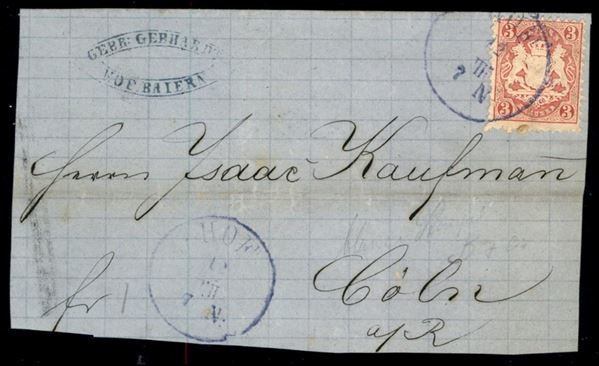 GEBR: GEBHARDT
HOF BAIERN
3 3
3 3
Herrn Isaac Kaufmann
HOF
III
7 N.
fr
Cöln
a/R